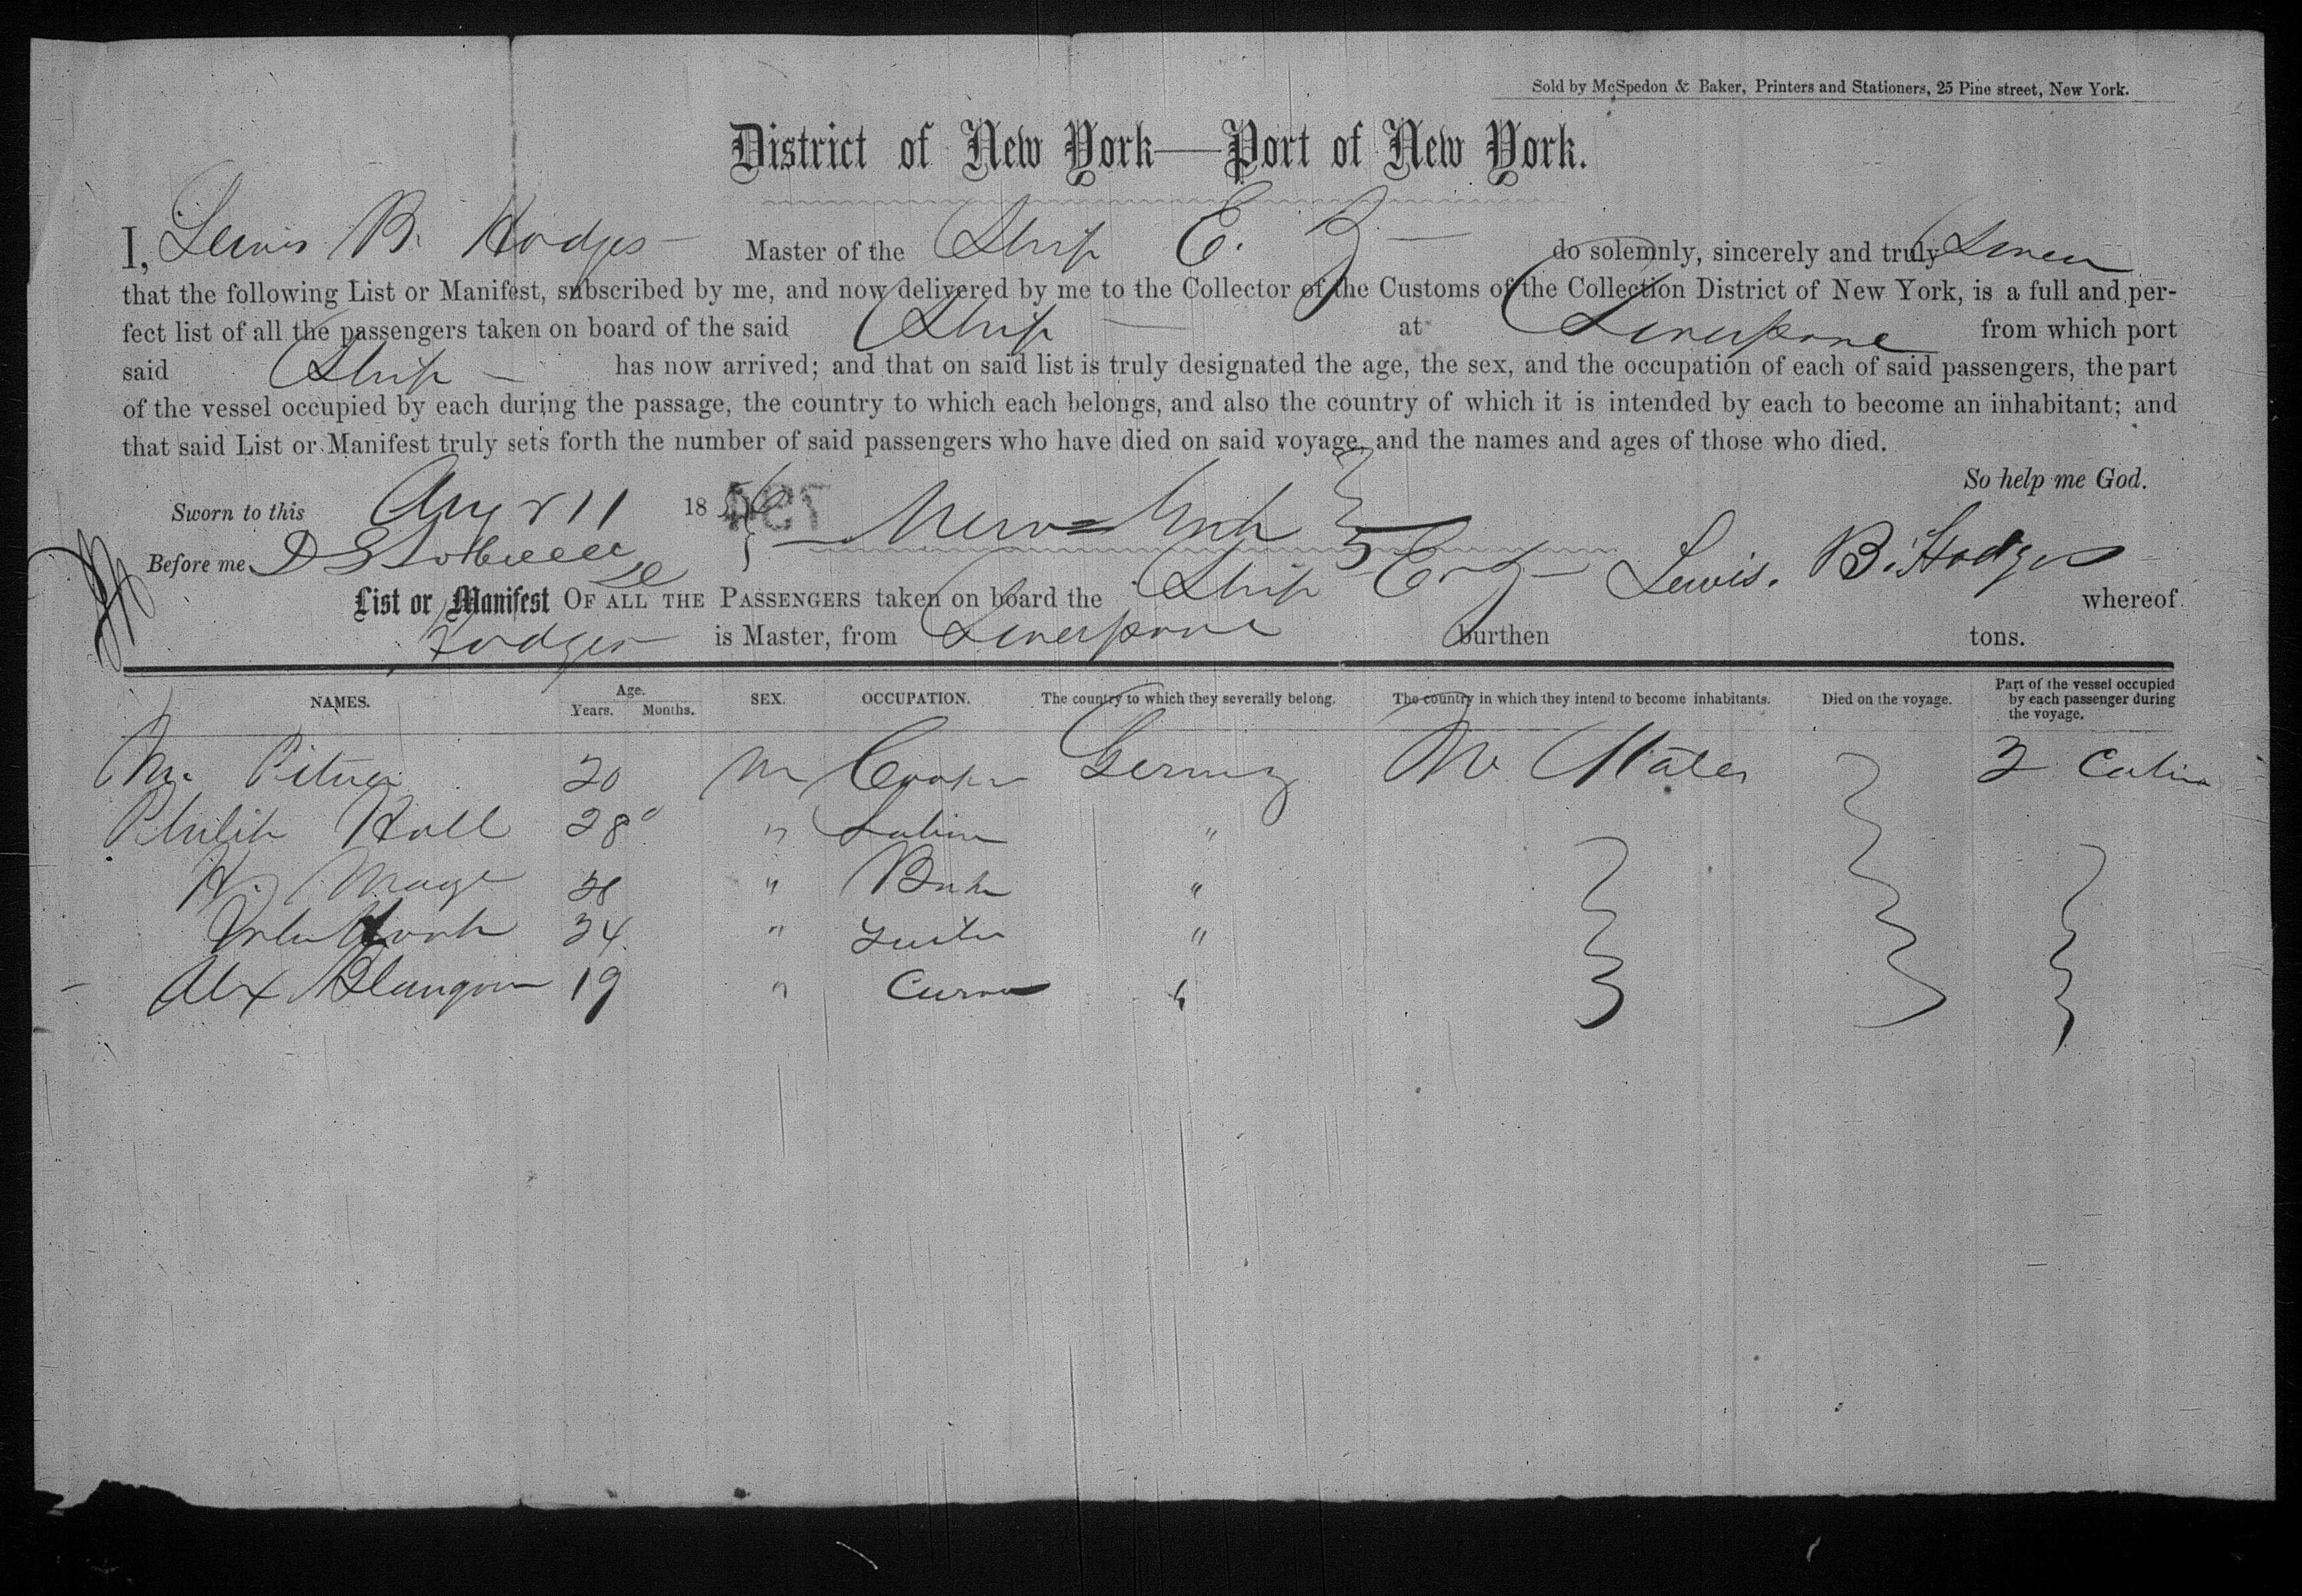 Sold by McSpedon & Baker, Printers and Stationers, 25 Pine street, New York.
District of New York—Port of New York.
I, Lewis B. Hodges Master of the Ship E. Z. do solemnly, sincerely and truly Swear
that the following List or Manifest, subscribed by me, and now delivered by me to the Collector of the Customs of the Collection District of New York, is a full and per-
fect list of all the passengers taken on board of the said Ship at Liverpool from which port
said Ship has now arrived; and that on said list is truly designated the age, the sex, and the occupation of each of said passengers, the part
of the vessel occupied by each during the passage, the country to which each belongs, and also the country of which it is intended by each to become an inhabitant; and
that said List or Manifest truly sets forth the number of said passengers who have died on said voyage, and the names and ages of those who died.
So help me God.
Sworn to this Aug 11 1856 New York
Before me Lewis. B. Hodges
List or Manifest OF ALL THE PASSENGERS taken on board the Ship E. Z. whereof
Hodges is Master, from Liverpool burthen tons.
NAMES. Age. Years. Months. SEX. OCCUPATION. The country to which they severally belong. The country in which they intend to become inhabitants. Died on the voyage. Part of the vessel occupied by each passenger during the voyage.
M. 20 M Cooper Germy States 2 Cabin
Philip Holl 28 " "
H. 28 " "
34 " "
Alex 19 "